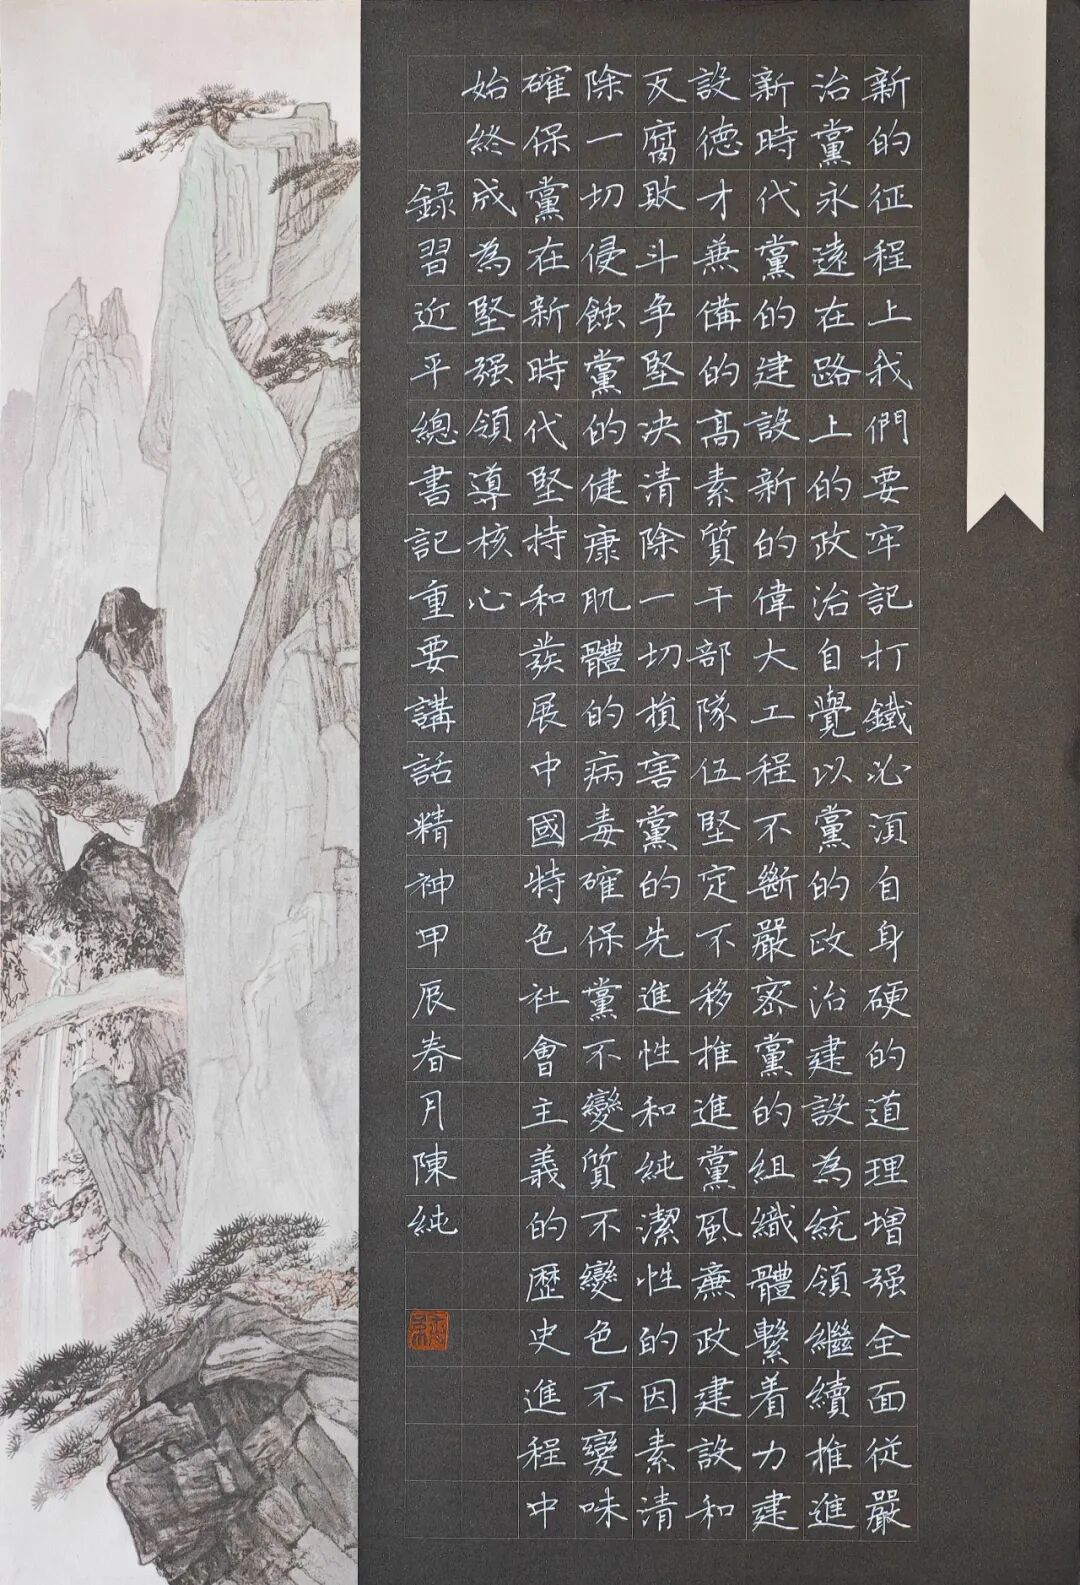 新的征程上我們要牢記打鐵必須自身硬的道理增强全面从嚴
治黨永遠在路上的政治自覺以黨的政治建設為統領繼續推進
新時代黨的建設新的偉大工程不斷嚴密黨的組織體繫着力建
設德才兼備的高素質干部隊伍堅定不移推進黨風廉政建設和
反腐敗斗争堅决清除一切損害黨的先進性和純潔性的因素清
除一切侵蝕黨的健康肌體的病毒確保黨不變質不變色不變味
確保黨在新時代堅持和發展中國特色社會主義的歷史進程中
始終成為堅强領導核心
録習近平總書記重要講話精神甲辰春月陳純